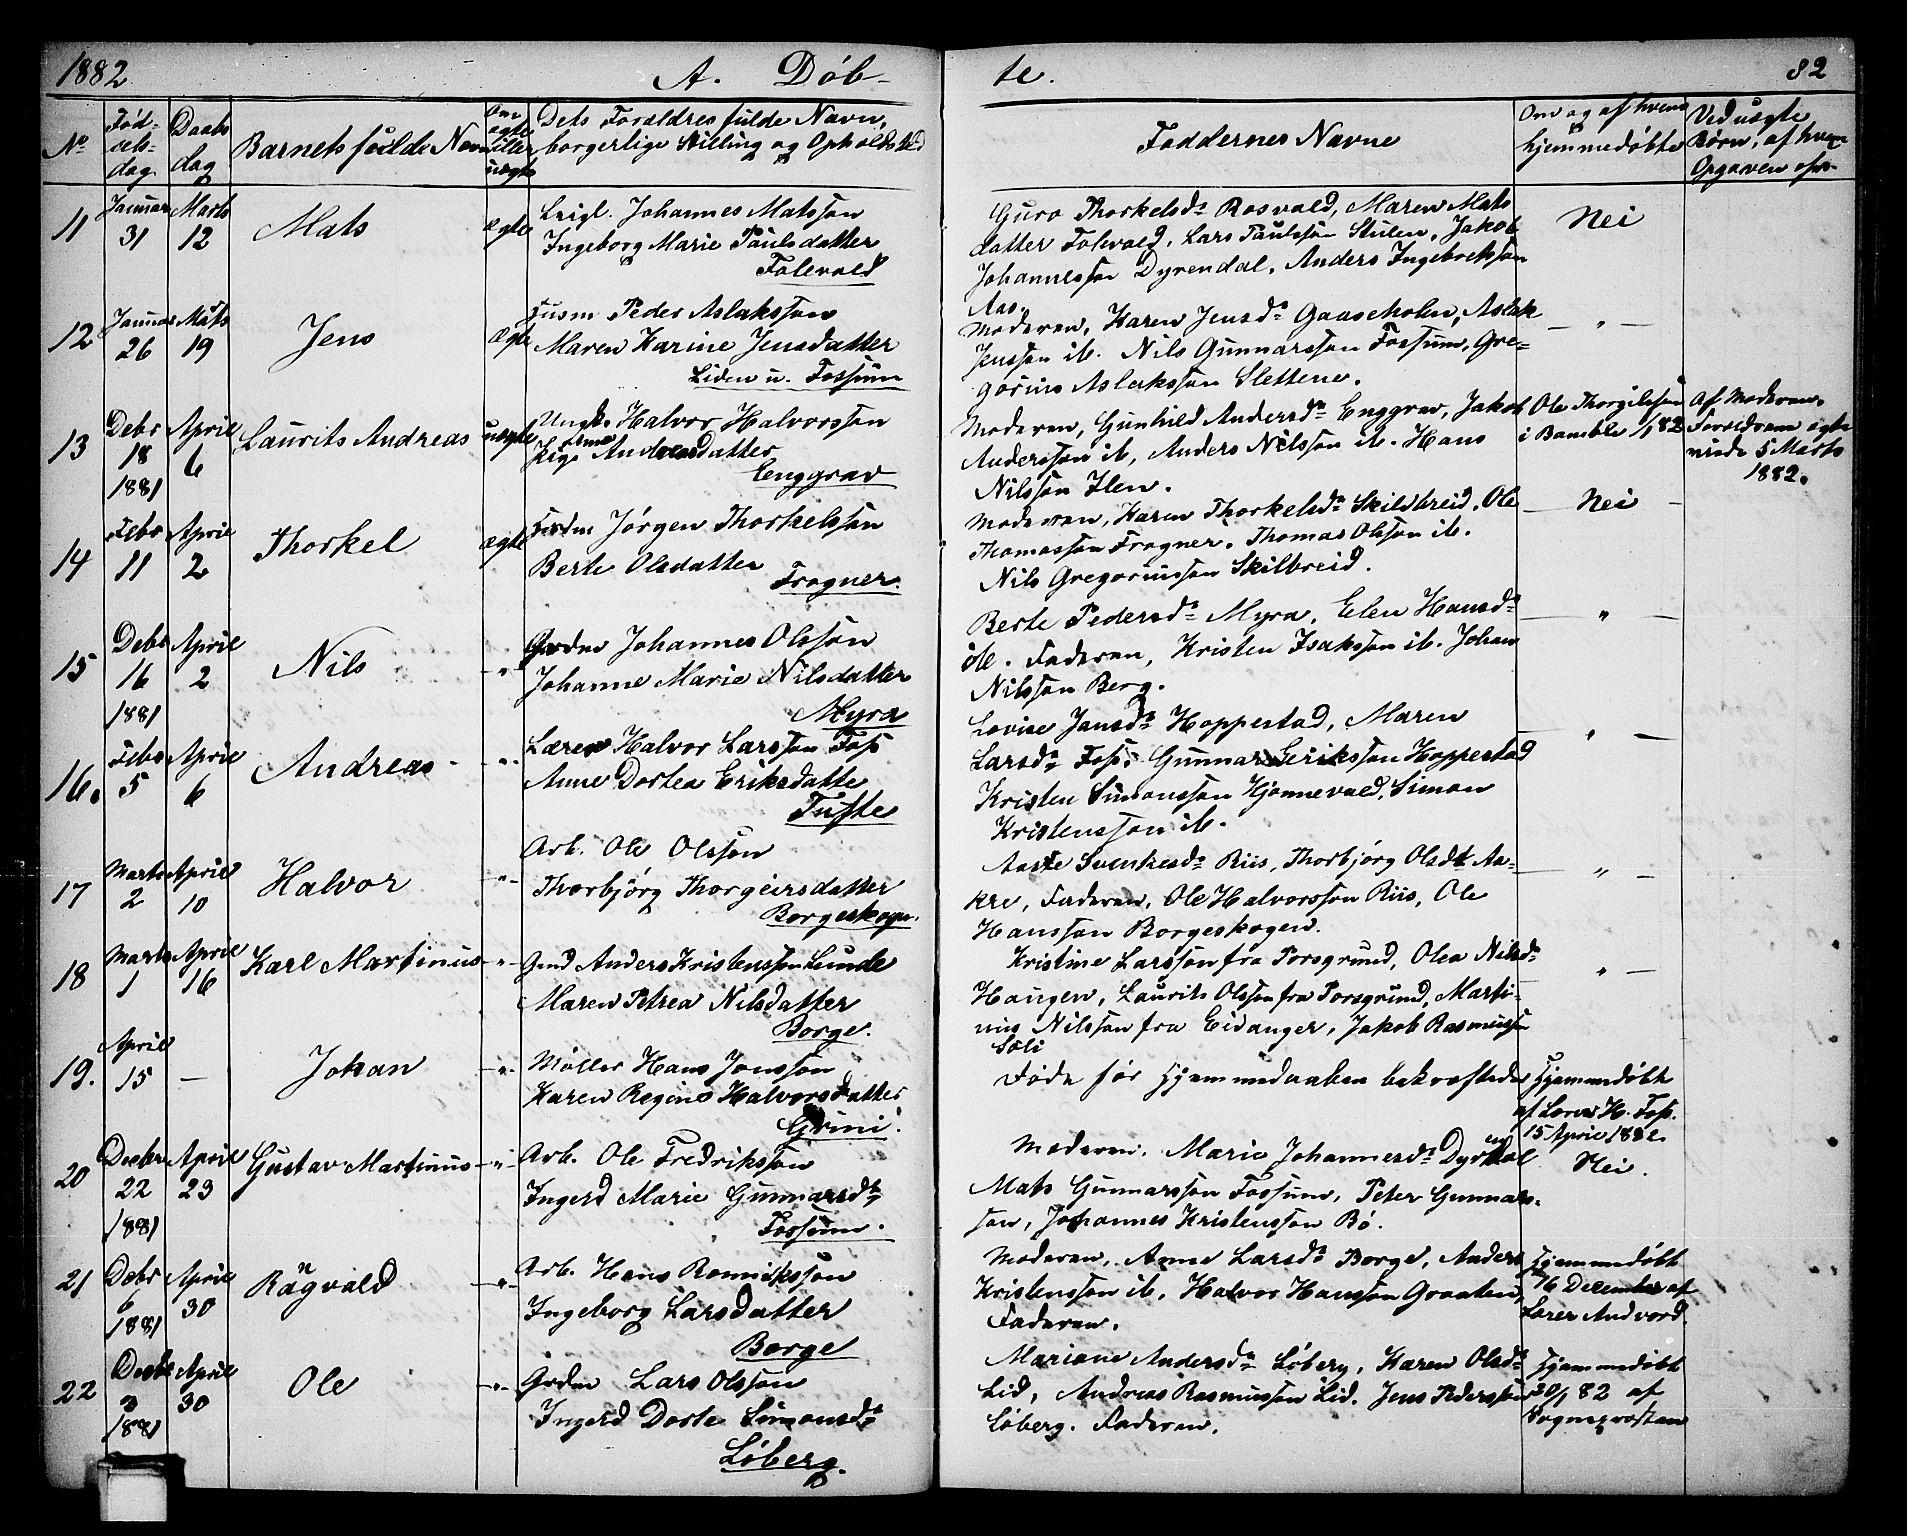 1882
A. Döb-
te.
82
No
Fød-
sels-
dag
Daabs
dag
Barnets fulde Navn
Om
ægte
eller
uægte
Dets Forældres fulde Navn,
borgerlige Stilling og Opholdssted
Faddernes Navne
Om og af hvem
hjemmedøbte
Ved uægte
Børn, af hvem
Opgaven
11
Januar
31
Marts
12
Mats
ægte
Johannes Matsson
Ingeborg Marie Paulsdatter
Folevald
Guro Thorkelsd. Rosvald, Maren Mats
datter Folevald, Lars Paulsson Stulen, Jakob
Johannesson Dyrendal, Anders Ingebrektson
Aas.
Nei
12
Januar
26
Mats
19
Jens
ægte
Husm Peder Aslaksson
Maren Karine Jensdatter
Liden u. Fossum
Moderen, Karen Jensd. Gaaseholm, Aslak
Jensson ib. Nils Gunnarsson Fossum, Gre-
gorius Aslaksson Slettene.
— " —
13
Debr
18
1881
April
6
Laurits Andreas
uægte
Ungk. Halvor Halvorsson
Pige Anne Andersdatter
Enggrav
Moderen, Gunhild Andersd. Enggrav, Jakob
Andersson ib, Anders Nilsson ib. Hans
Nilsson Hen.
Ole Thorgilsson
i Bamble 1/1 82
Af Moderen.
Forældrene ægte
viede 5 Marts
1882.
14
Febr
11
April
2
Thorkel
ægte
Jørgen Thorkelsson
Berte Olsdatter
Frogner.
Moderen, Karen Thorkelsd. Skilbreid, Ole
Thomasson Frogner, Thomas Olsson ib.
Nils Gregoriusson Skilbreid.
— Nei —
15
Debr
16
1881
April
2
Nils
- " -
Grdm Johannes Olsson
Johanne Marie Nilsdatter
Myra
Berte Pedersd. Myra, Elen Hansd.
ib. Faderen, Kristen Isaksson ib. Johan
Nilsson Berg.
— " —
16.
Febr
5
April
6
Andreas
- " -
Lærer Halvor Larsson Foss
Anne Dortea Eriksdatte
Tufte
Lovise Jansd. Hoppestad, Maren
Larsd. Foss, Gunnar Eriksson Hoppestad
Kristen Simonsson Hjønnevald, Simon
Kristensson ib.
— " —
17
Marts
2
April
10
Halvor
- " -
Arb. Ole Olsson
Thorbjörg Thorgeirsdatter
Borgeskogen.
Aaste Svenkesd. Riis, Thorbjörg Olsdt. Aa-
kre, Faderen, Ole Halvorsson Riis, Ole
Hansson Borgeskogen.
— " —
18
Marts
1
April
16
Karl Martinus
- " -
Gmd Anders Kristensson Lunde
Maren Petrea Nilsdatter
Borge.
Kristine Larsson fra Porsgrund, Olea Nilsd.
Haugen, Laurits Olsson fra Porsgrund, Marti-
nus Nilsson fra Eidanger, Jakob Rasmusson
Soli
" —
19.
April
15
—
Johan
- " -
Møller Hans Jonsson
Karen Regine Halvorsdatter
Grini.
Døde før Hjemmedaaben bekræftedes
Hjemmedøbt
af Lærer H. Foss.
15 April 1882.
20
Decbr
22
1881
April
23
Gustav Martinus
- " -
Arb. Ole Fredriksson
Ingerd Marie Gunnarsd.
Fossum.
Moderen. Marie Johannesd. Dyrendal
Mats Gunnarsson Fossum, Peter Gunnars-
son, Johannes Kristensson Bö.
Nei.
21
Decbr
6
1881
April
30
Ragnvald
- " -
Arb. Hans Romniksson
Ingeborg Larsdatter
Borge
Moderen, Anne Larsd. Borge, Anders
Kristensson ib, Halvor Hansson Graaten,
Faderen.
Hjemmedøbt
16 December af
Lærer Andvord
22
Decbr
3
1881
April
30
Ole
- " -
Grdm Lars Olsson
Ingerd Dorte Simonsd.
Löberg.
Mariane Andersd. Löberg, Karen Olsd.
Lid, Andreas Rasmusson Lid, Jens Pedersson
Löberg. Faderen.
Hjemmedøbt
20/1 82 af
Sognepræsten